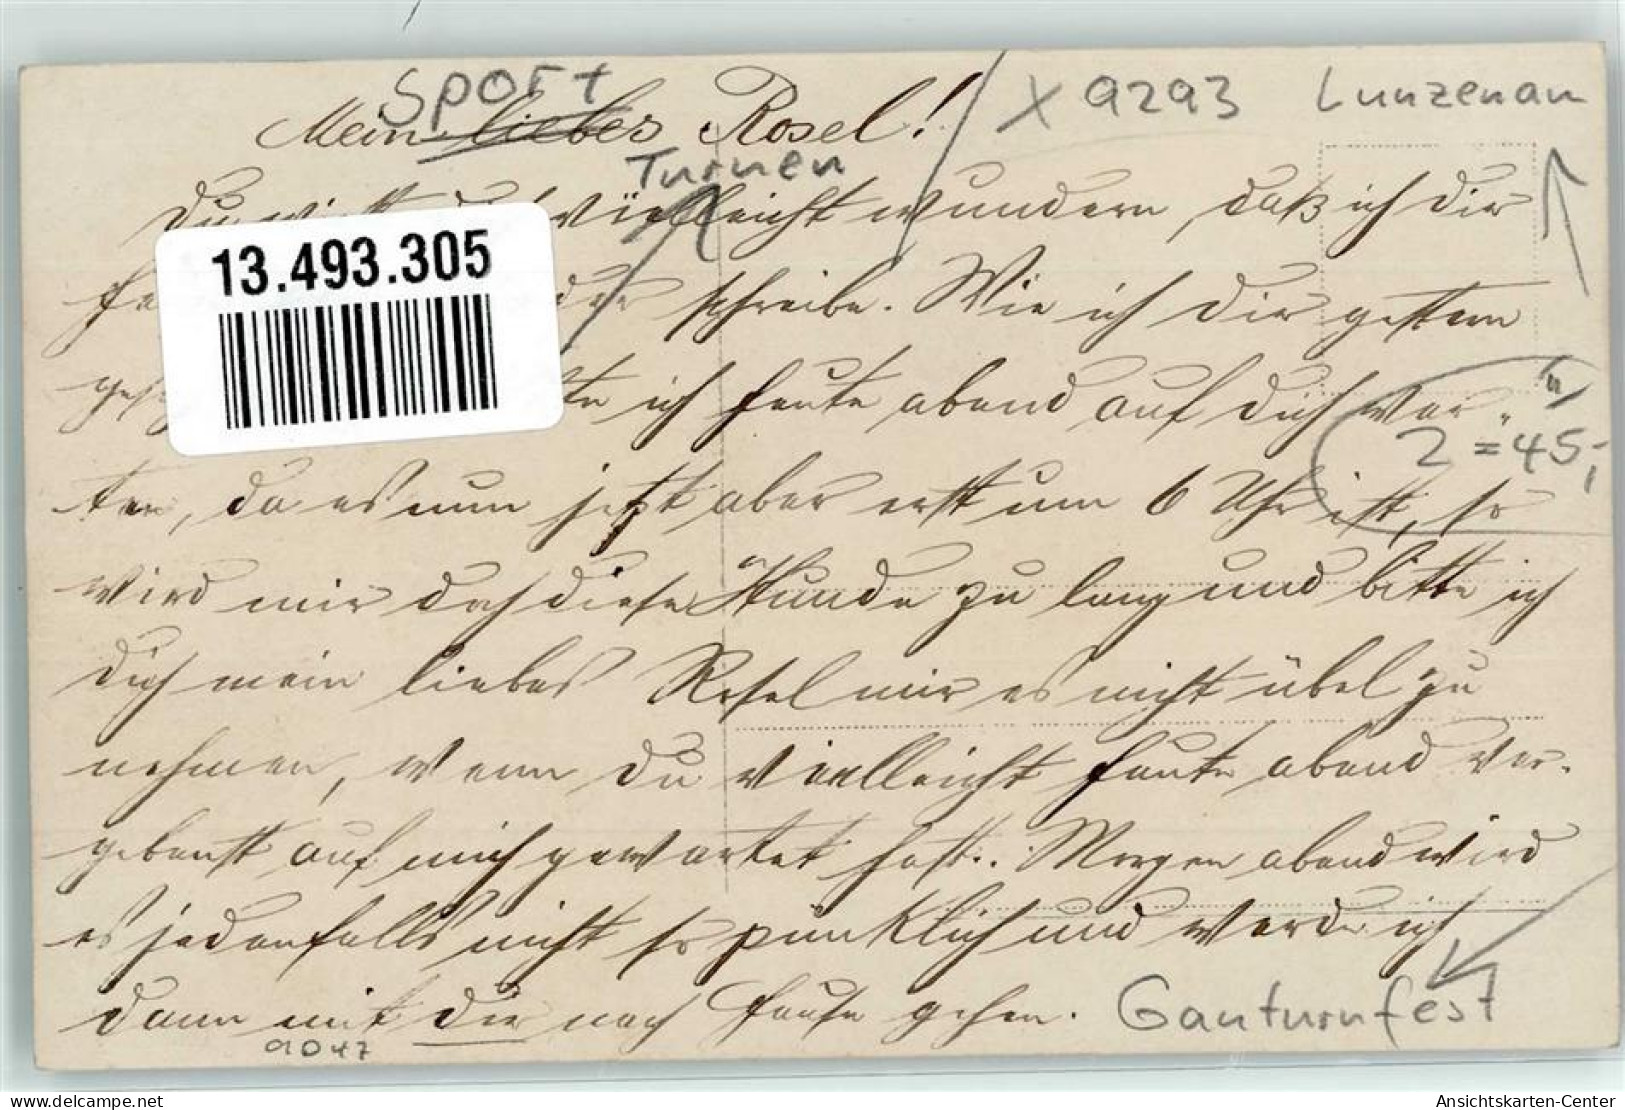 Sport
X 9293 Lunzenau
Mein liebes Rosel!
Turnen
Du wirst du vielleicht wundern, daß ich dir
13.493.305
schreibe. Wie ich dir gestern
ich heute abend auf dich war-
2 = 45,-
ten, da es nun jetzt aber erst um 6 Uhr ist, so
wird mir doch diese Stunde zu lang und bitte ich
dich mein liebes Rosel mir es nicht übel zu
nehmen, wenn du vielleicht heute abend ver-
gebenst auf mich gewartet hast. Morgen abend wird
es jedenfalls nicht so pünklich und werde ich
dann mit dir nach Hause gehen.
Gauturnfest
9047
oldthing.de
Ansichtskarten-Center